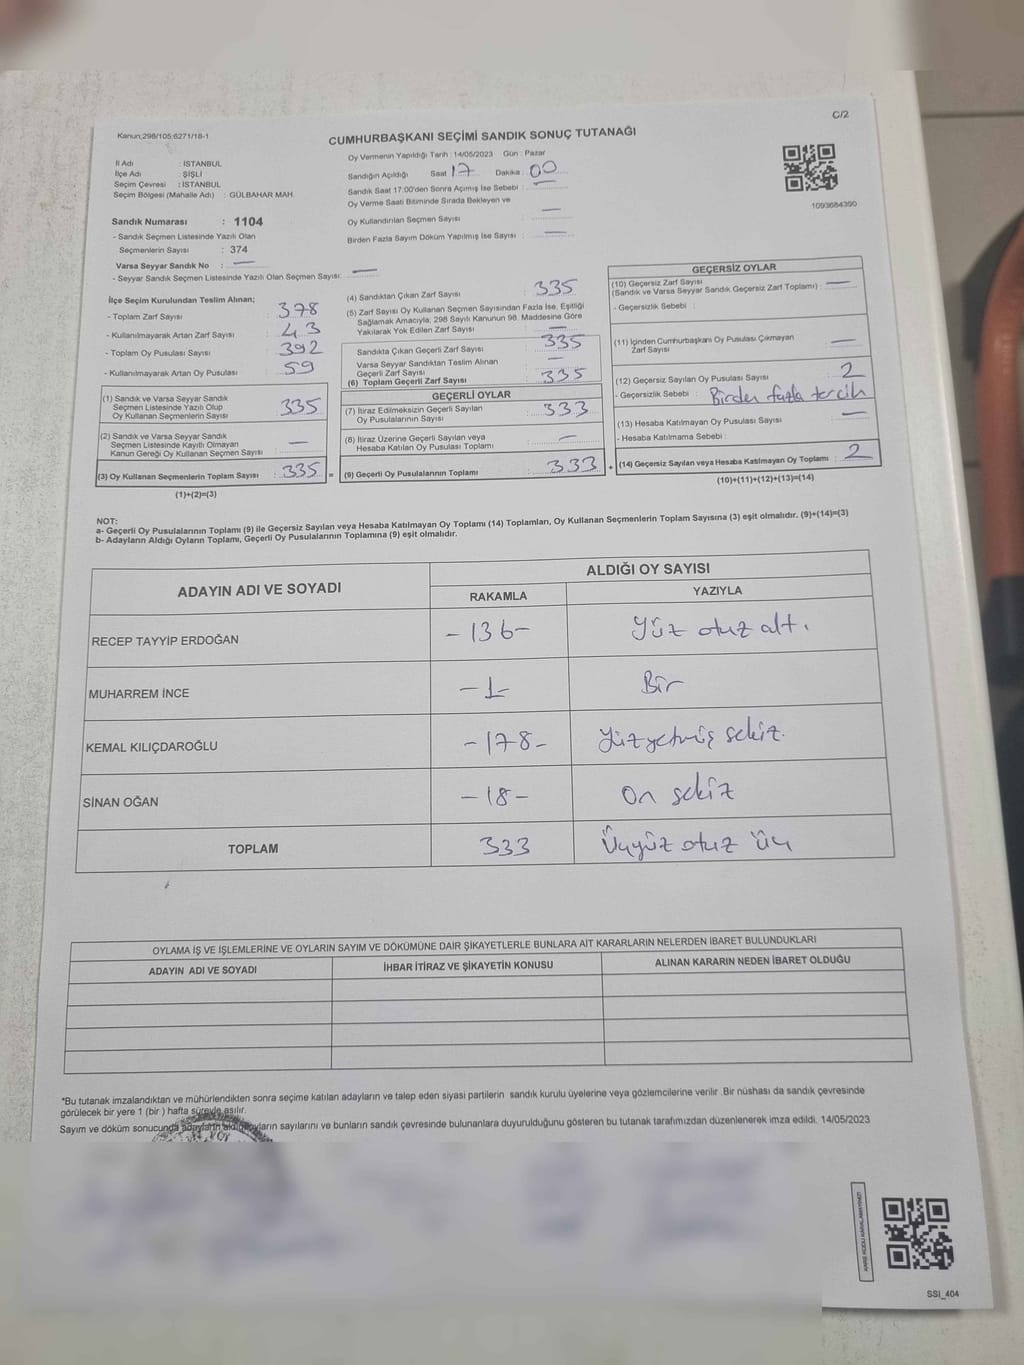 C/2
Kanun;298/105;6271/18-1
CUMHURBAŞKANI SEÇİMİ SANDIK SONUÇ TUTANAĞI
İl Adı : İSTANBUL
İlçe Adı : ŞİŞLİ
Seçim Çevresi : İSTANBUL
Seçim Bölgesi (Mahalle Adı) : GÜLBAHAR MAH.
Oy Vermenin Yapıldığı Tarih : 14/05/2023 Gün : Pazar
Sandığın Açıldığı Saat 17 Dakika : 00
Sandık Saat 17:00'den Sonra Açımış İse Sebebi : —
Oy Verme Saati Bitiminde Sırada Bekleyen ve
Oy Kullandırılan Seçmen Sayısı —
Birden Fazla Sayım Döküm Yapılmış İse Sayısı : —
1093684390
Sandık Numarası : 1104
- Sandık Seçmen Listesinde Yazılı Olan
Seçmenlerin Sayısı : 374
Varsa Seyyar Sandık No : —
- Seyyar Sandık Seçmen Listesinde Yazılı Olan Seçmen Sayısı: —
İlçe Seçim Kurulundan Teslim Alınan;
- Toplam Zarf Sayısı : 378
- Kullanılmayarak Artan Zarf Sayısı : 43
- Toplam Oy Pusulası Sayısı : 392
- Kullanılmayarak Artan Oy Pusulası : 59
(1) Sandık ve Varsa Seyyar Sandık
Seçmen Listesinde Yazılı Olup
Oy Kullanan Seçmenlerin Sayısı : 335
(2) Sandık ve Varsa Seyyar Sandık
Seçmen Listesinde Kayıtlı Olmayan
Kanun Gereği Oy Kullanan Seçmen Sayısı : —
(3) Oy Kullanan Seçmenlerin Toplam Sayısı : 335 =
(1)+(2)=(3)
(4) Sandıktan Çıkan Zarf Sayısı : 335
(5) Zarf Sayısı Oy Kullanan Seçmen Sayısından Fazla İse, Eşitliği
Sağlamak Amacıyla; 298 Sayılı Kanunun 98. Maddesine Göre
Yakılarak Yok Edilen Zarf Sayısı : —
Sandıkta Çıkan Geçerli Zarf Sayısı : 335
Varsa Seyyar Sandıktan Teslim Alınan
Geçerli Zarf Sayısı : —
(6) Toplam Geçerli Zarf Sayısı : 335
GEÇERLİ OYLAR
(7) İtiraz Edilmeksizin Geçerli Sayılan
Oy Pusulalarının Sayısı : 333
(8) İtiraz Üzerine Geçerli Sayılan veya
Hesaba Katılan Oy Pusulası Toplamı : —
(9) Geçerli Oy Pusulalarının Toplamı : 333 +
GEÇERSİZ OYLAR
(10) Geçersiz Zarf Sayısı
(Sandık ve Varsa Seyyar Sandık Geçersiz Zarf Toplamı) : —
- Geçersizlik Sebebi :
(11) İçinden Cumhurbaşkanı Oy Pusulası Çıkmayan
Zarf Sayısı : —
(12) Geçersiz Sayılan Oy Pusulası Sayısı : 2
- Geçersizlik Sebebi : Birden fazla tercih
(13) Hesaba Katılmayan Oy Pusulası Sayısı : —
- Hesaba Katılmama Sebebi :
(14) Geçersiz Sayılan veya Hesaba Katılmayan Oy Toplamı : 2
(10)+(11)+(12)+(13)=(14)
NOT:
a- Geçerli Oy Pusulalarının Toplamı (9) ile Geçersiz Sayılan veya Hesaba Katılmayan Oy Toplamı (14) Toplamları, Oy Kullanan Seçmenlerin Toplam Sayısına (3) eşit olmalıdır. (9)+(14)=(3)
b- Adayların Aldığı Oyların Toplamı, Geçerli Oy Pusulalarının Toplamına (9) eşit olmalıdır.
ADAYIN ADI VE SOYADI ALDIĞI OY SAYISI
RAKAMLA YAZIYLA
RECEP TAYYİP ERDOĞAN -136- Yüz otuz altı
MUHARREM İNCE -1- Bir
KEMAL KILIÇDAROĞLU -178- Yüz yetmiş sekiz.
SİNAN OĞAN -18- On sekiz
TOPLAM 333 Üçyüz otuz üç
OYLAMA İŞ VE İŞLEMLERİNE VE OYLARIN SAYIM VE DÖKÜMÜNE DAİR ŞİKAYETLERLE BUNLARA AİT KARARLARIN NELERDEN İBARET BULUNDUKLARI
ADAYIN ADI VE SOYADI İHBAR İTİRAZ VE ŞİKAYETİN KONUSU ALINAN KARARIN NEDEN İBARET OLDUĞU
*Bu tutanak imzalandıktan ve mühürlendikten sonra seçime katılan adayların ve talep eden siyasi partilerin sandık kurulu üyelerine veya gözlemcilerine verilir. Bir nüshası da sandık çevresinde
görülecek bir yere 1 (bir ) hafta süreyle asılır.
Sayım ve döküm sonucunda adayların aldığı oyların sayılarını ve bunların sandık çevresinde bulunanlara duyurulduğunu gösteren bu tutanak tarafımızdan düzenlenerek imza edildi. 14/05/2023
KARE KODU KARALAMAYINIZ!
SSİ_404